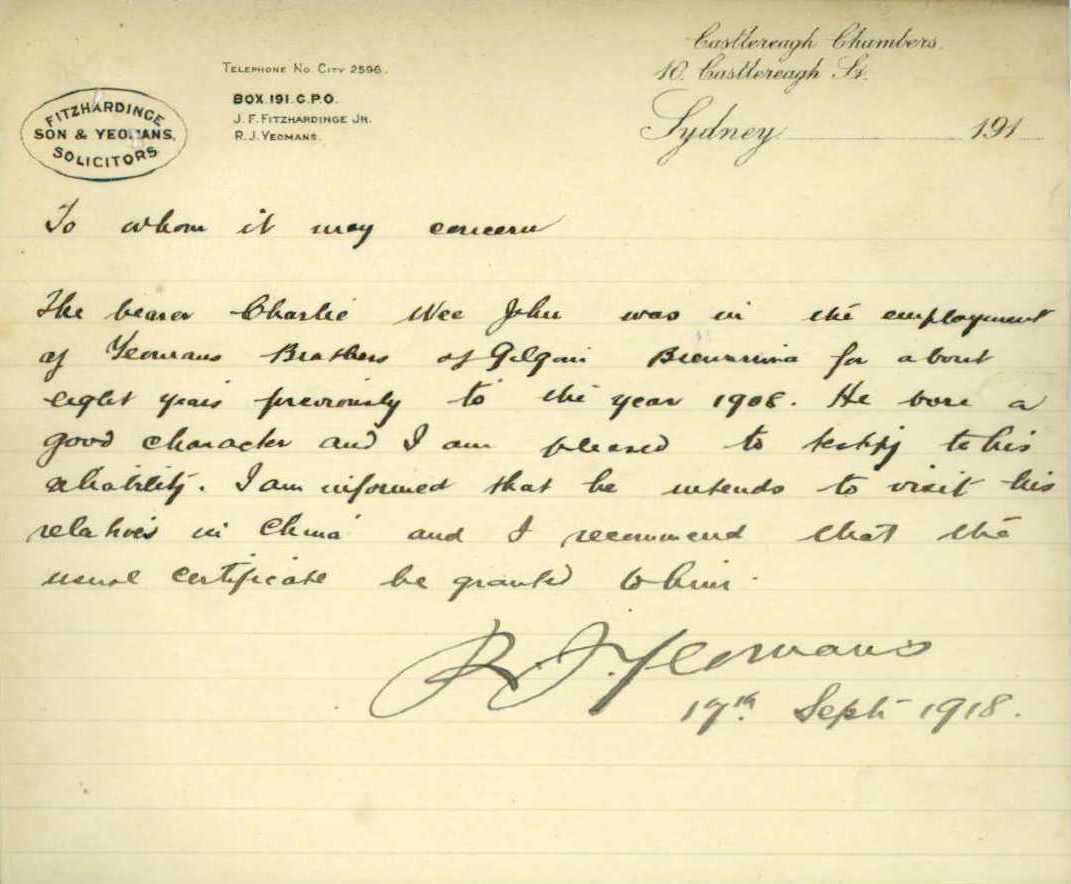 FITZHARDINGE
SON & YEOMANS,
SOLICITORS
TELEPHONE No. CITY 2596.
BOX 191. G.P.O.
J. F. FITZHARDINGE JR.
R. J. YEOMANS.
Castlereagh Chambers,
10, Castlereagh St.
Sydney 191
To whom it may concern
The bearer Charlie Wee John was in the employment
of Yeomans Brothers of Gilgoin Brewarrina for about
eight years previously to the year 1908. He bore a
good character and I am pleased to testify to his
reliability. I am informed that he intends to visit his
relatives in China and I recommend that the
usual certificate be granted to him.
R. J. Yeomans
17th Sept 1918.